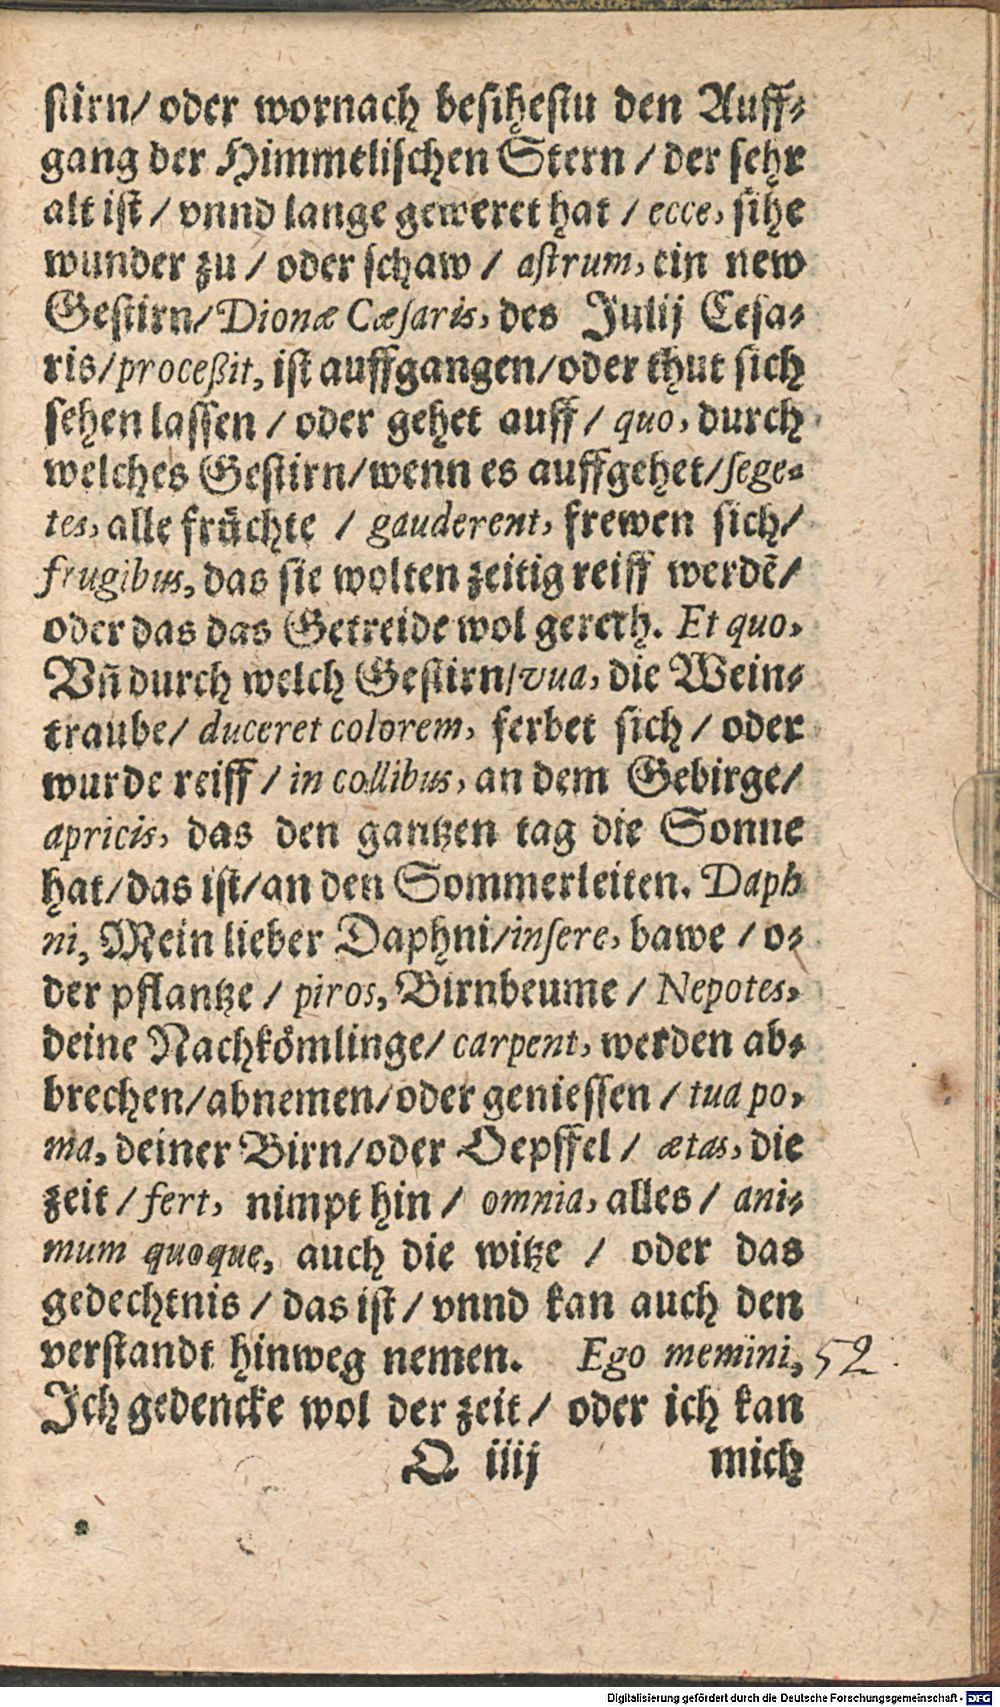 stirn/ oder wornach besihestu den Auff⸗
gang der Himmelischen Stern / der sehr
alt ist / vnnd lange geweret hat / ecce, sihe
wunder zu / oder schaw / astrum, ein new
Gestirn/ Dionæ Cæsaris, des Julij Cesa⸗
ris/ proceßit, ist auffgangen/oder thut sich
sehen lassen / oder gehet auff / quo, durch
welches Gestirn/wenn es auffgehet/sege⸗
tes, alle früchte / gauderent, frewen sich/
frugibus, das sie wolten zeitig reiff werdẽ/
oder das das Getreide wol gereth. Et quo,
Vñ durch welch Gestirn/vua, die Wein⸗
traube/ duceret colorem, ferbet sich / oder
wurde reiff / in collibus, an dem Gebirge/
apricis, das den gantzen tag die Sonne
hat/das ist/an den Sommerleiten. Daph
ni, Mein lieber Daphni/insere, bawe / o⸗
der pflantze / piros, Birnbeume / Nepotes,
deine Nachkömlinge/ carpent, werden ab⸗
brechen/abnemen/oder geniessen / tua po⸗
ma, deiner Birn/oder Oepffel / ætas, die
zeit / fert, nimpt hin / omnia, alles / ani⸗
mum quoque, auch die witze / oder das
gedechtnis / das ist / vnnd kan auch den
verstandt hinweg nemen. Ego memini, 52
Ich gedencke wol der zeit / oder ich kan
O iiij mich
Digitalisierung gefördert durch die Deutsche Forschungsgemeinschaft - DFG